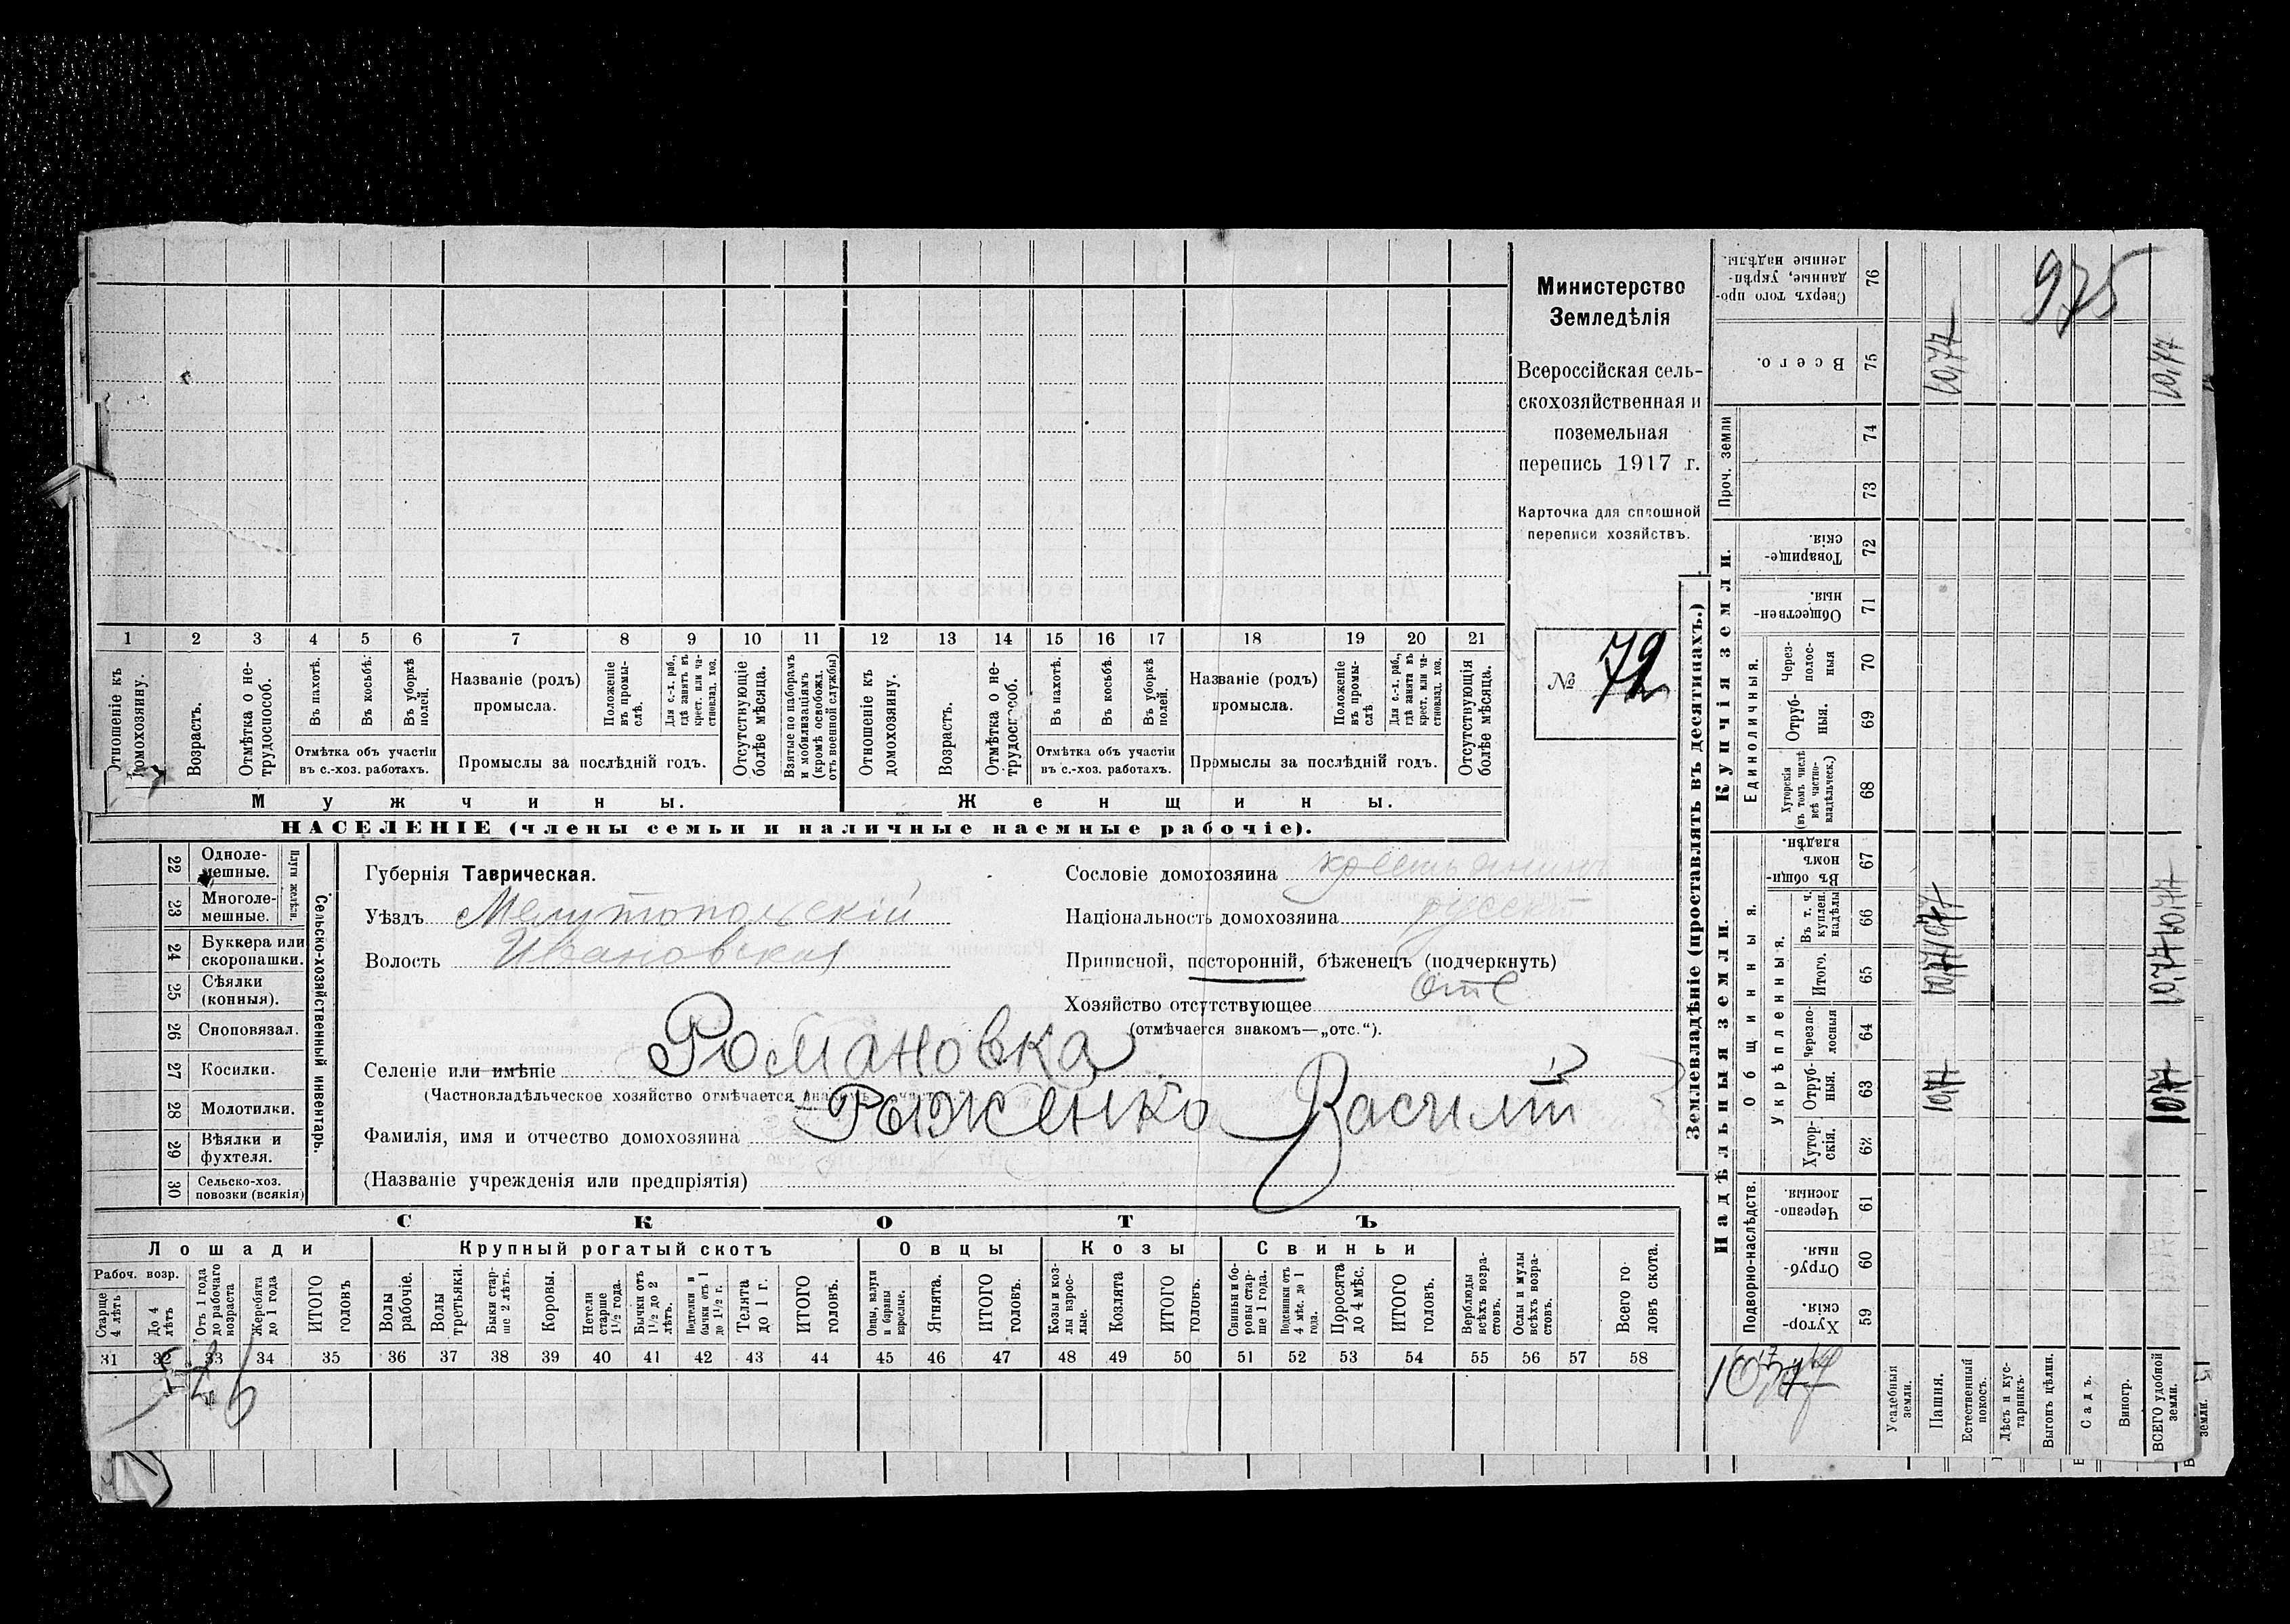 1 2 3 4 5 6 7 8 9 10 11 12 13 14 15 16 17 18 19 20 21
Отношеніе къ домохозяину.
Возрастъ.
Отмѣтка о не-трудоспособ.
Въ пахотѣ.
Въ косьбѣ.
Въ уборкѣ полей.
Отмѣтка объ участіи
въ с.-хоз. работахъ.
Названіе (родъ)
промысла.
Положеніе въ промы-слѣ.
Для с.-х. раб., гдѣ занятъ въ крест. или ча-стновлад. хоз.
Промыслы за послѣдній годъ.
Отсутствующіе болѣе мѣсяца.
Взятые по наборамъ и мобилизаціямъ (кромѣ освобожд. отъ военной службы)
Отношеніе къ домохозяину.
Возрастъ.
Отмѣтка о не-трудоспособ.
Въ пахотѣ.
Въ косьбѣ.
Въ уборкѣ полей.
Отмѣтка объ участіи
въ с.-хоз. работахъ.
Названіе (родъ)
промысла.
Положеніе въ промы-слѣ
Для с.-х. раб., гдѣ занята въ крест. или ча-стновлад. хоз.
Промыслы за послѣдній годъ.
Отсутствующія болѣе мѣсяца.
Мужчины.
Женщины.
НАСЕЛЕНІЕ (члены семьи и наличные наемные рабочіе).
Министерство
Земледѣлія
Всероссійская сель-
скохозяйственная и
поземельная
перепись 1917 г.
Карточка для сплошной
переписи хозяйствъ.
№ 72
22 Одноле-мешные.
23 Многоле-мешные.
Плуги желѣзн.
24 Буккера или скоропашки.
25 Сѣялки (конныя).
26 Сноповязал.
27 Косилки.
28 Молотилки.
29 Вѣялки и фухтеля.
30 Сельско-хоз. повозки (всякія)
Сельско-хозяйственный инвентарь.
Губернія Таврическая.
Уѣздъ Мелитопольскій
Волость Ивановская
Сословіе домохозяина крестьянинъ
Національность домохозяина русскій
Приписной, посторонній, бѣженецъ (подчеркнуть)
Хозяйство отсутствующее Отс
(отмѣчается знакомъ—„отс.“).
Селеніе или имѣніе Романовка
(Частновладѣльческое хозяйство отмѣчается
Фамилія, имя и отчество домохозяина Рыженко Василій
(Названіе учрежденія или предпріятія)
СКОТЪ
Лошади
Крупный рогатый скотъ
Овцы
Козы
Свиньи
Рабоч. возр.
Старше 4 лѣтъ
До 4 лѣтъ
Отъ 1 года до рабочаго возраста
Жеребята до 1 года
ИТОГО головъ
Волы рабочіе.
Волы третьяки.
Быки стар-ше 2 лѣтъ.
Коровы.
Нетели старше 1½ года.
Бычки отъ 1½ до 2 лѣтъ.
Подтелки и бычки отъ 1 до 1½ г.
Телята до 1 г.
ИТОГО головъ.
Овцы, валухи и бараны взрослые.
Ягнята.
ИТОГО головъ.
Козы и коз-лы взрос-лые.
Козлята
ИТОГО головъ.
Свиньи и бо-ровы стар-ше 1 года.
Подсвинки отъ 4 мѣс. до 1 года.
Поросята до 4 мѣс.
ИТОГО головъ.
Верблюды всѣхъ возра-стовъ.
Ослы и мулы всѣхъ возра-стовъ.
Всего го-ловъ скота.
31 32 33 34 35 36 37 38 39 40 41 42 43 44 45 46 47 48 49 50 51 52 53 54 55 56 57 58
Землевладѣніе (проставлять въ десятинахъ.)
Надѣльныя земли.
Купчія земли.
Проч. земли
Сверхъ того про-данные, укрѣп-ленные надѣлы.
76
975
Всего.
75
10,77
10,77
74
73
Товарище-скія.
72
Обществен-ныя.
71
Единоличныя.
Через-полос-ныя
70
Отруб-ныя.
69
Хуторскія (въ томъ числѣ всѣ частно-владѣльческ.)
68
Общинныя.
Въ общин-номъ владѣн.
67
Укрѣпленныя.
Въ т. ч. куплен. надѣлы
66
Итого.
65
Черезпо-лосныя
64
Отруб-ныя.
63
Хутор-скія.
62
Подворно-наслѣдств.
Черезпо-лосныя.
61
Отруб-ныя.
60
Хутор-скія.
59
Усадебныя земли.
Пашня.
Естественный покосъ.
Лѣсъ и кус-тарникъ.
Выгонъ цѣлин.
Садъ.
Виногр.
ВСЕГО удобной земли.